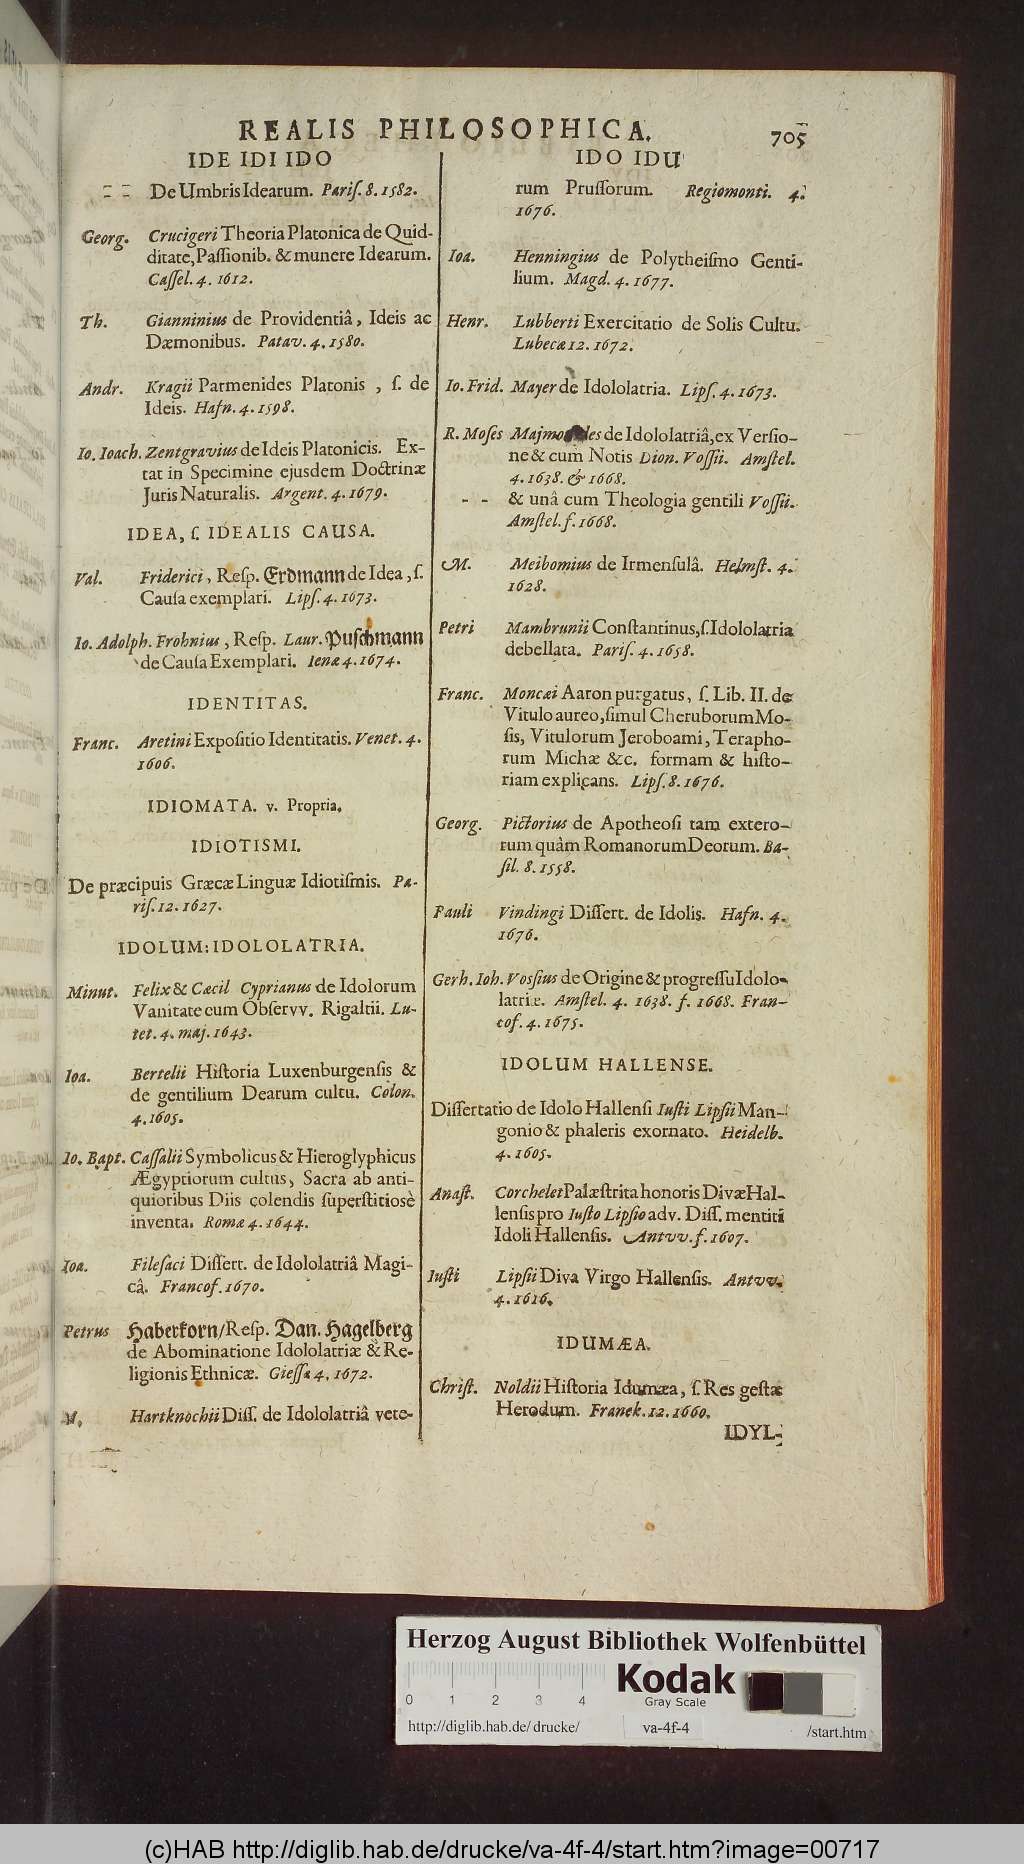 REALIS PHILOSOPHICA.
705
IDE IDI IDO
- - De Umbris Idearum. Pariſ. 8. 1582.
Georg. Crucigeri Theoria Platonica de Quid-
ditate, Paſſionib. & munere Idearum.
Caſſel. 4. 1612.
Th. Gianninius de Providentiâ, Ideis ac
Dæmonibus. Patav. 4. 1580.
Andr. Kragii Parmenides Platonis, ſ. de
Ideis. Hafn. 4. 1598.
Io. Ioach. Zentgravius de Ideis Platonicis. Ex-
tat in Specimine ejusdem Doctrinæ
Juris Naturalis. Argent. 4. 1679.
IDEA, ſ. IDEALIS CAUSA.
Val. Friderici, Reſp. Erdmann de Idea, ſ.
Cauſa exemplari. Lipſ. 4. 1673.
Io. Adolph. Frohnius, Reſp. Laur. Puſchmann
de Cauſa Exemplari. Ienæ 4. 1674.
IDENTITAS.
Franc. Aretini Expoſitio Identitatis. Venet. 4.
1606.
IDIOMATA. v. Propria.
IDIOTISMI.
De præcipuis Græcæ Linguæ Idiotiſmis. Pa-
riſ. 12. 1627.
IDOLUM: IDOLOLATRIA.
Minut. Felix & Cæcil Cyprianus de Idolorum
Vanitate cum Obſervv. Rigaltii. Lu-
tet. 4. maj. 1643.
Ioa. Bertelii Hiſtoria Luxenburgenſis &
de gentilium Dearum cultu. Colon.
4. 1605.
Io. Bapt. Caſſalii Symbolicus & Hieroglyphicus
Ægyptiorum cultus, Sacra ab anti-
quioribus Diis colendis ſuperſtitiosè
inventa. Romæ 4. 1644.
Ioa. Fileſaci Diſſert. de Idololatriâ Magi-
câ. Francof. 1670.
Petrus Haberkorn/ Reſp. Dan. Hagelberg
de Abominatione Idololatriæ & Re-
ligionis Ethnicæ. Gieſſæ 4. 1672.
M. Hartknochii Diſſ. de Idololatriâ vete-
IDO IDU
rum Pruſſorum. Regiomonti. 4.
1676.
Ioa. Henningius de Polytheiſmo Genti-
lium. Magd. 4. 1677.
Henr. Lubberti Exercitatio de Solis Cultu.
Lubecæ 12. 1672.
Io. Frid. Mayer de Idololatria. Lipſ. 4. 1673.
R. Moſes de Idololatriâ, ex Verſio-
ne & cum Notis Dion. Voſſii. Amſtel.
4. 1638. & 1668.
- - & unâ cum Theologia gentili Voſſii.
Amſtel. f. 1668.
M. Meibomius de Irmenſulâ. Helmſt. 4.
1628.
Petri Mambrunii Conſtantinus, ſ. Idololatria
debellata. Pariſ. 4. 1658.
Franc. Moncæi Aaron purgatus, ſ. Lib. II. de
Vitulo aureo, ſimul Cheruborum Mo-
ſis, Vitulorum Jeroboami, Terapho-
rum Michæ &c. formam & hiſto-
riam explicans. Lipſ. 8. 1676.
Georg. Pictorius de Apotheoſi tam extero-
rum quàm Romanorum Deorum. Ba-
ſil. 8. 1558.
Pauli Vindingi Diſſert. de Idolis. Hafn. 4.
1676.
Gerh. Ioh. Voſſius de Origine & progreſſu Idolo-
latriæ. Amſtel. 4. 1638. f. 1668. Fran-
cof. 4. 1675.
IDOLUM HALLENSE.
Diſſertatio de Idolo Hallenſi Iuſti Lipſii Man-
gonio & phaleris exornato. Heidelb.
4. 1605.
Anaſt. Corchelet Palæſtrita honoris Divæ Hal-
lenſis pro Iuſto Lipſio adv. Diſſ. mentiti
Idoli Hallenſis. Antvv. f. 1607.
Iuſti Lipſii Diva Virgo Hallenſis. Antvv.
4. 1616.
IDUMÆA.
Chriſt. Noldii Hiſtoria Idumæa, ſ. Res geſtæ
Herodum. Franek. 12. 1660.
IDYL-
Herzog August Bibliothek Wolfenbüttel
Kodak
Gray Scale
0 1 2 3 4
http://diglib.hab.de/drucke/ va-4f-4 /start.htm
(c)HAB http://diglib.hab.de/drucke/va-4f-4/start.htm?image=00717